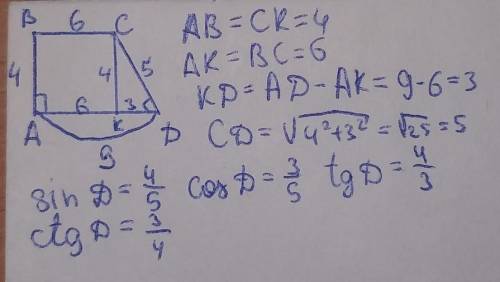 B 6 C
4 4 5
6 3
A K D
9
AB = CK = 4
AK = BC = 6
KD = AD - AK = 9 - 6 = 3
CD = √4²+3² = √25 = 5
sin D = 4/5
cos D = 3/5
tg D = 4/3
ctg D = 3/4